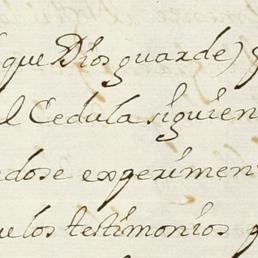 que Dios guarde) y
l Cedula siguien
dose experimen
los testimonios